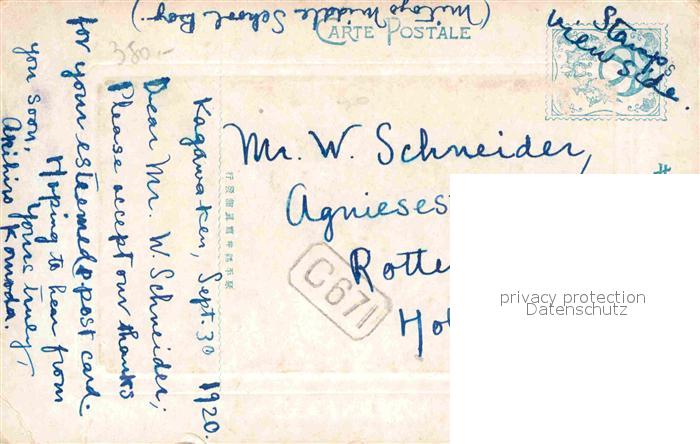 (Mitoyo Middle School Boy.)
CARTE POSTALE
Stamps
view side.
350.-
Kagawa-Ken, Sept. 30 1920.
Dear Mr. W. Schneider;
Please accept our thanks
for your esteemed post card.
Hoping to hear from
you soon,
Yours truly,
Akihiro Komoda.
Mr. W. Schneider,
Agnieses
Rotte
Ho
C671
privacy protection
Datenschutz